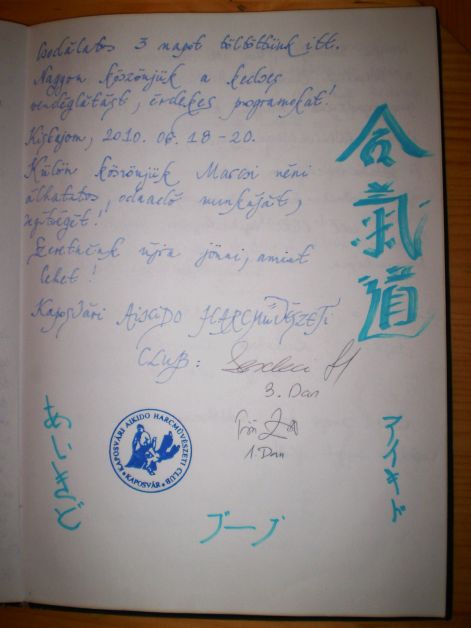 Csodálatos 3 napot töltöttünk itt.
Nagyon köszönjük a kedves
vendéglátást, érdekes programokat!
Kiskajom, 2010. 06. 18-20.
Külön köszönjük Marcsi néni
álhatatos, odaadó munkáját,
segítségét!
Szeretnénk újra jönni, amint
lehet!
Kaposvári AIKIDO HARCMŰVÉSZETI
CLUB:
3. Dan
1. Dan
合氣道
あいきどう
アイキド
KAPOSVÁRI AIKIDO HARCMŰVÉSZETI CLUB
KAPOSVÁR